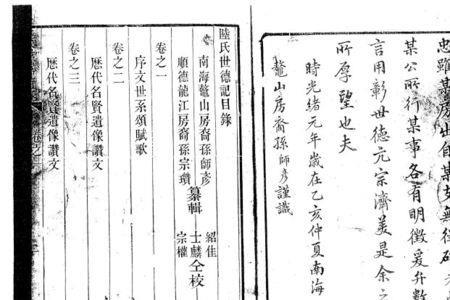 忠雖某房出自某支無從
某公所行某事各有明徵爰弁數
言用彰世德元宗濟美是余之
所厚望也夫
時光緒元年歲在乙亥仲夏南海
鼇山房裔孫師彥謹識
陸氏世德記目錄
南海鼇山房裔孫師彥
順德龍江房裔孫宗瓚
纂輯
紹佳
士麟
宗權
仝校
卷之一
序文世系頌賦歌
卷之二
歷代名賢遺像讚文
卷之三
歷代名賢遺像讚文